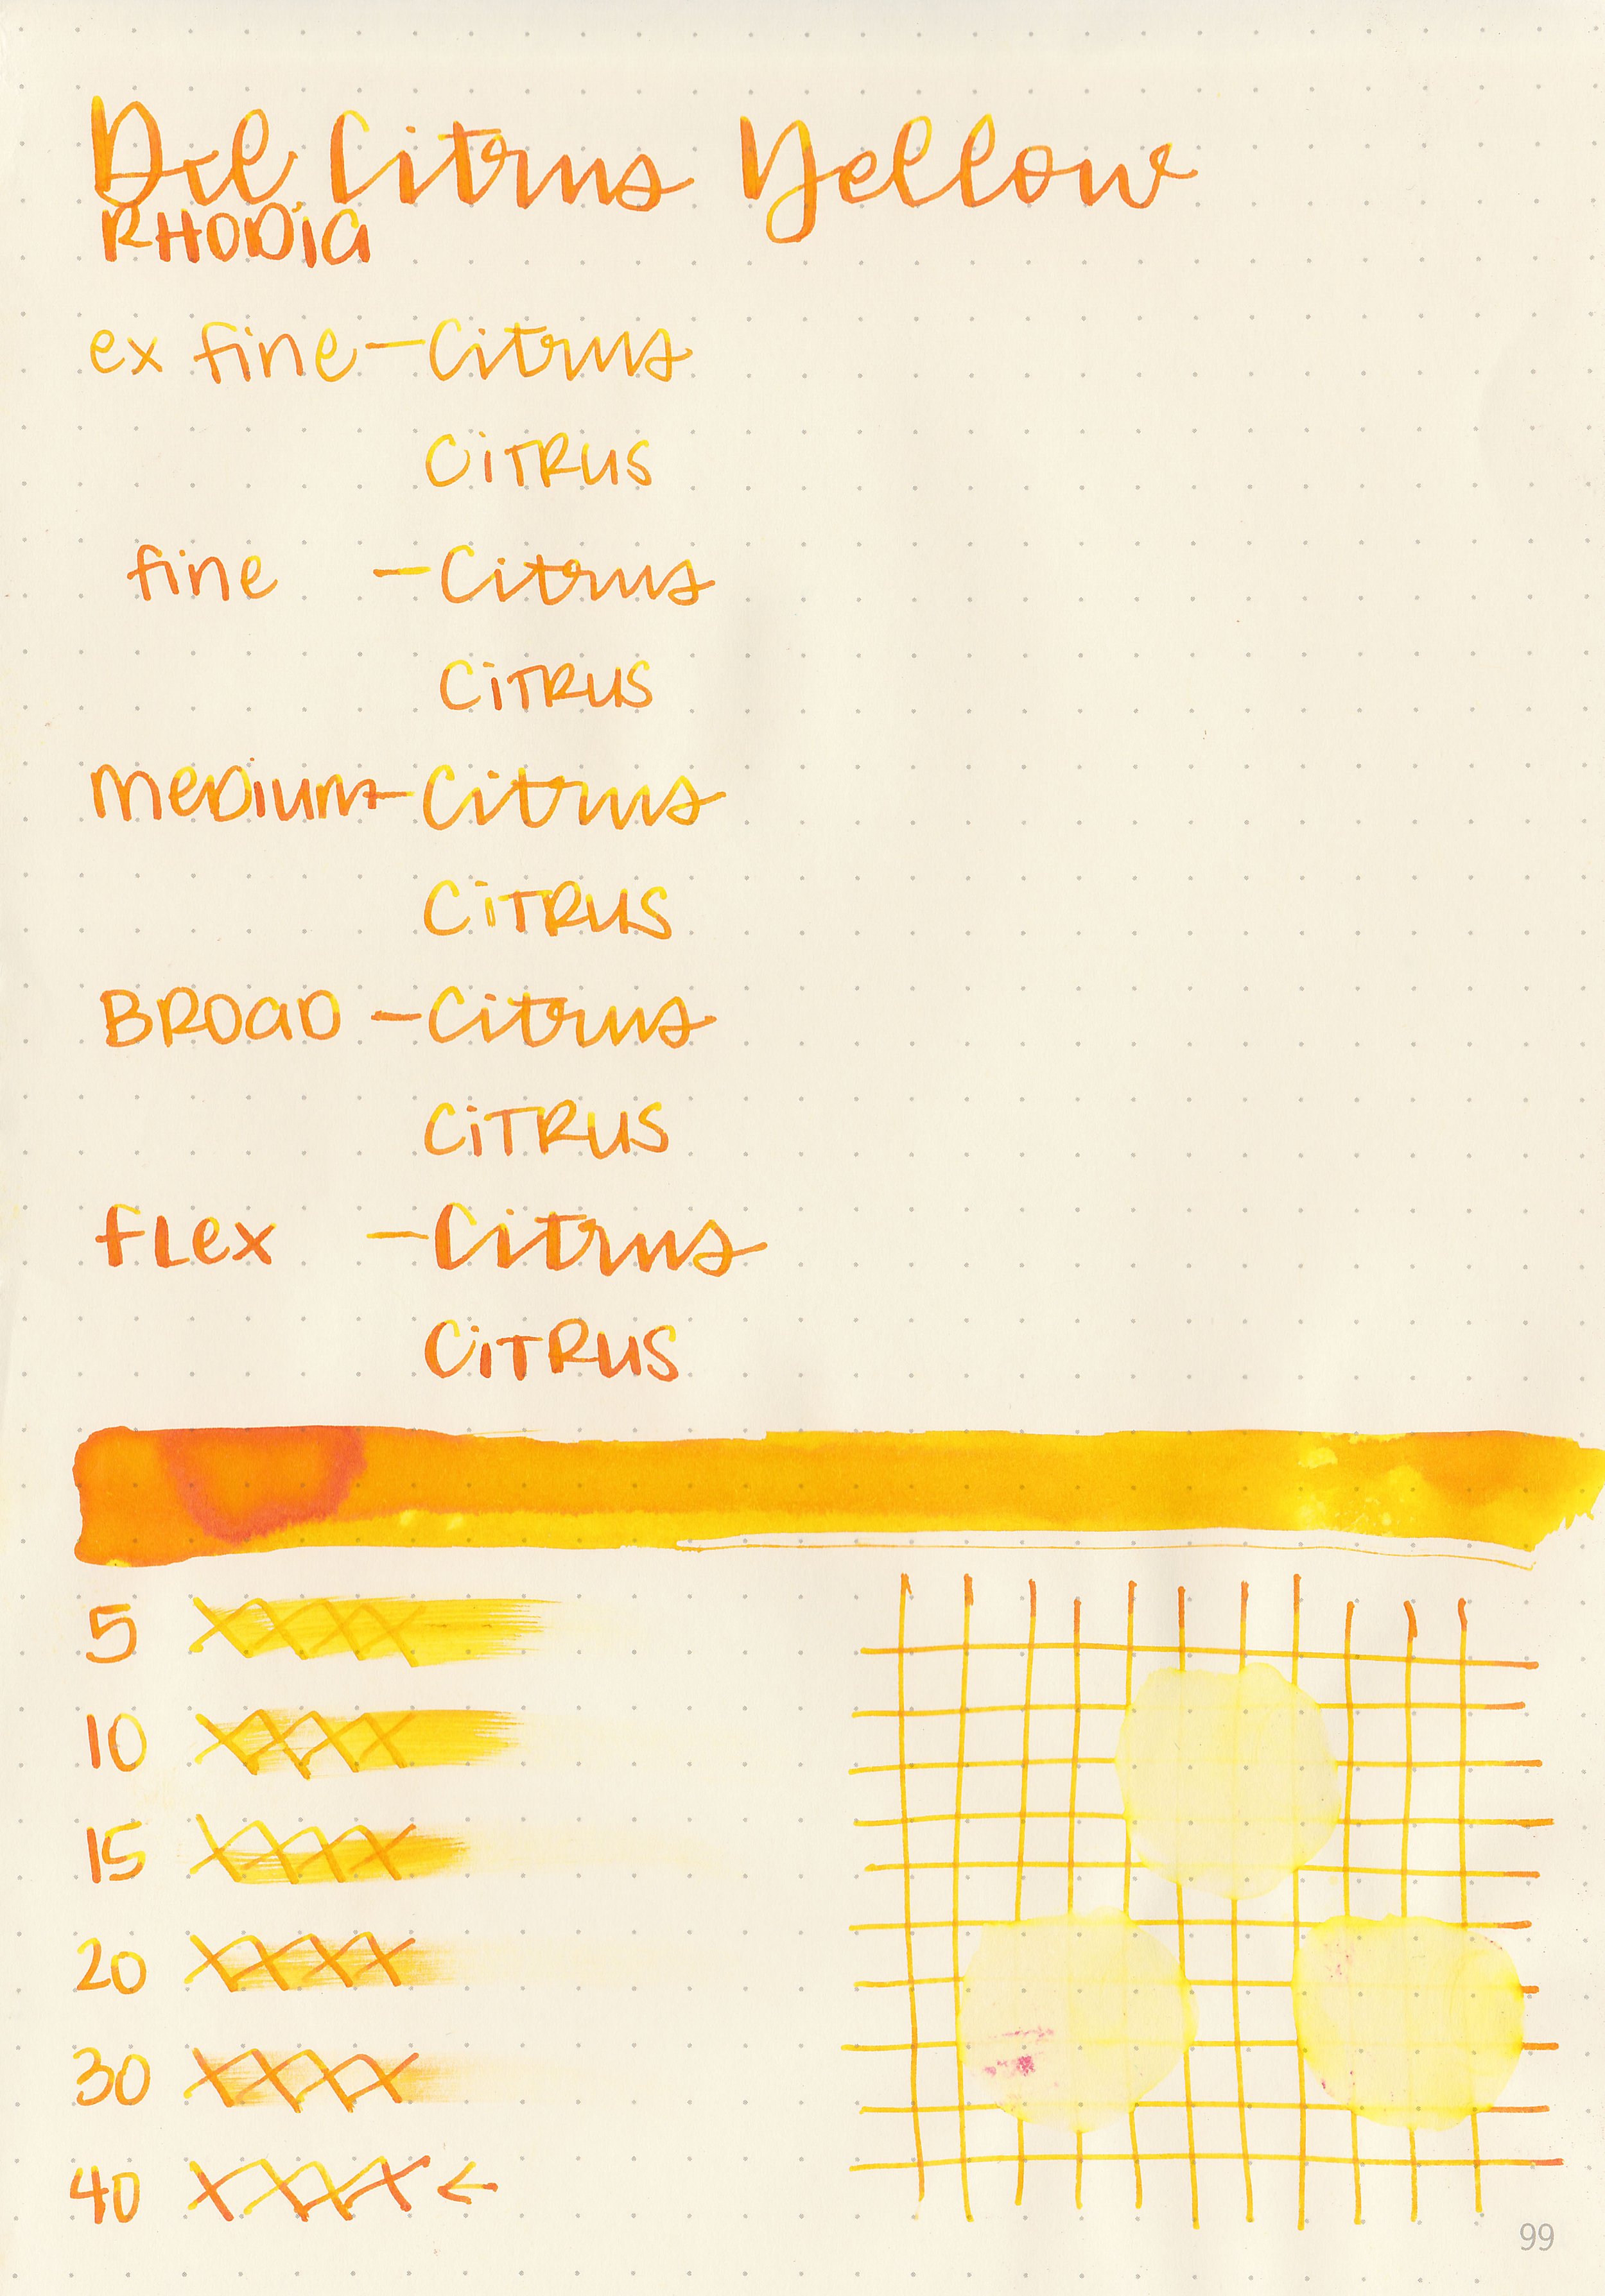 Del Citrus Yellow
RHODia
ex fine - Citrus
CiTRUS
fine - Citrus
CiTRUS
meDium - Citrus
CiTRUS
BROaD - Citrus
CiTRUS
fLex - Citrus
CiTRUS
5
10
15
20
30
40 ←
99